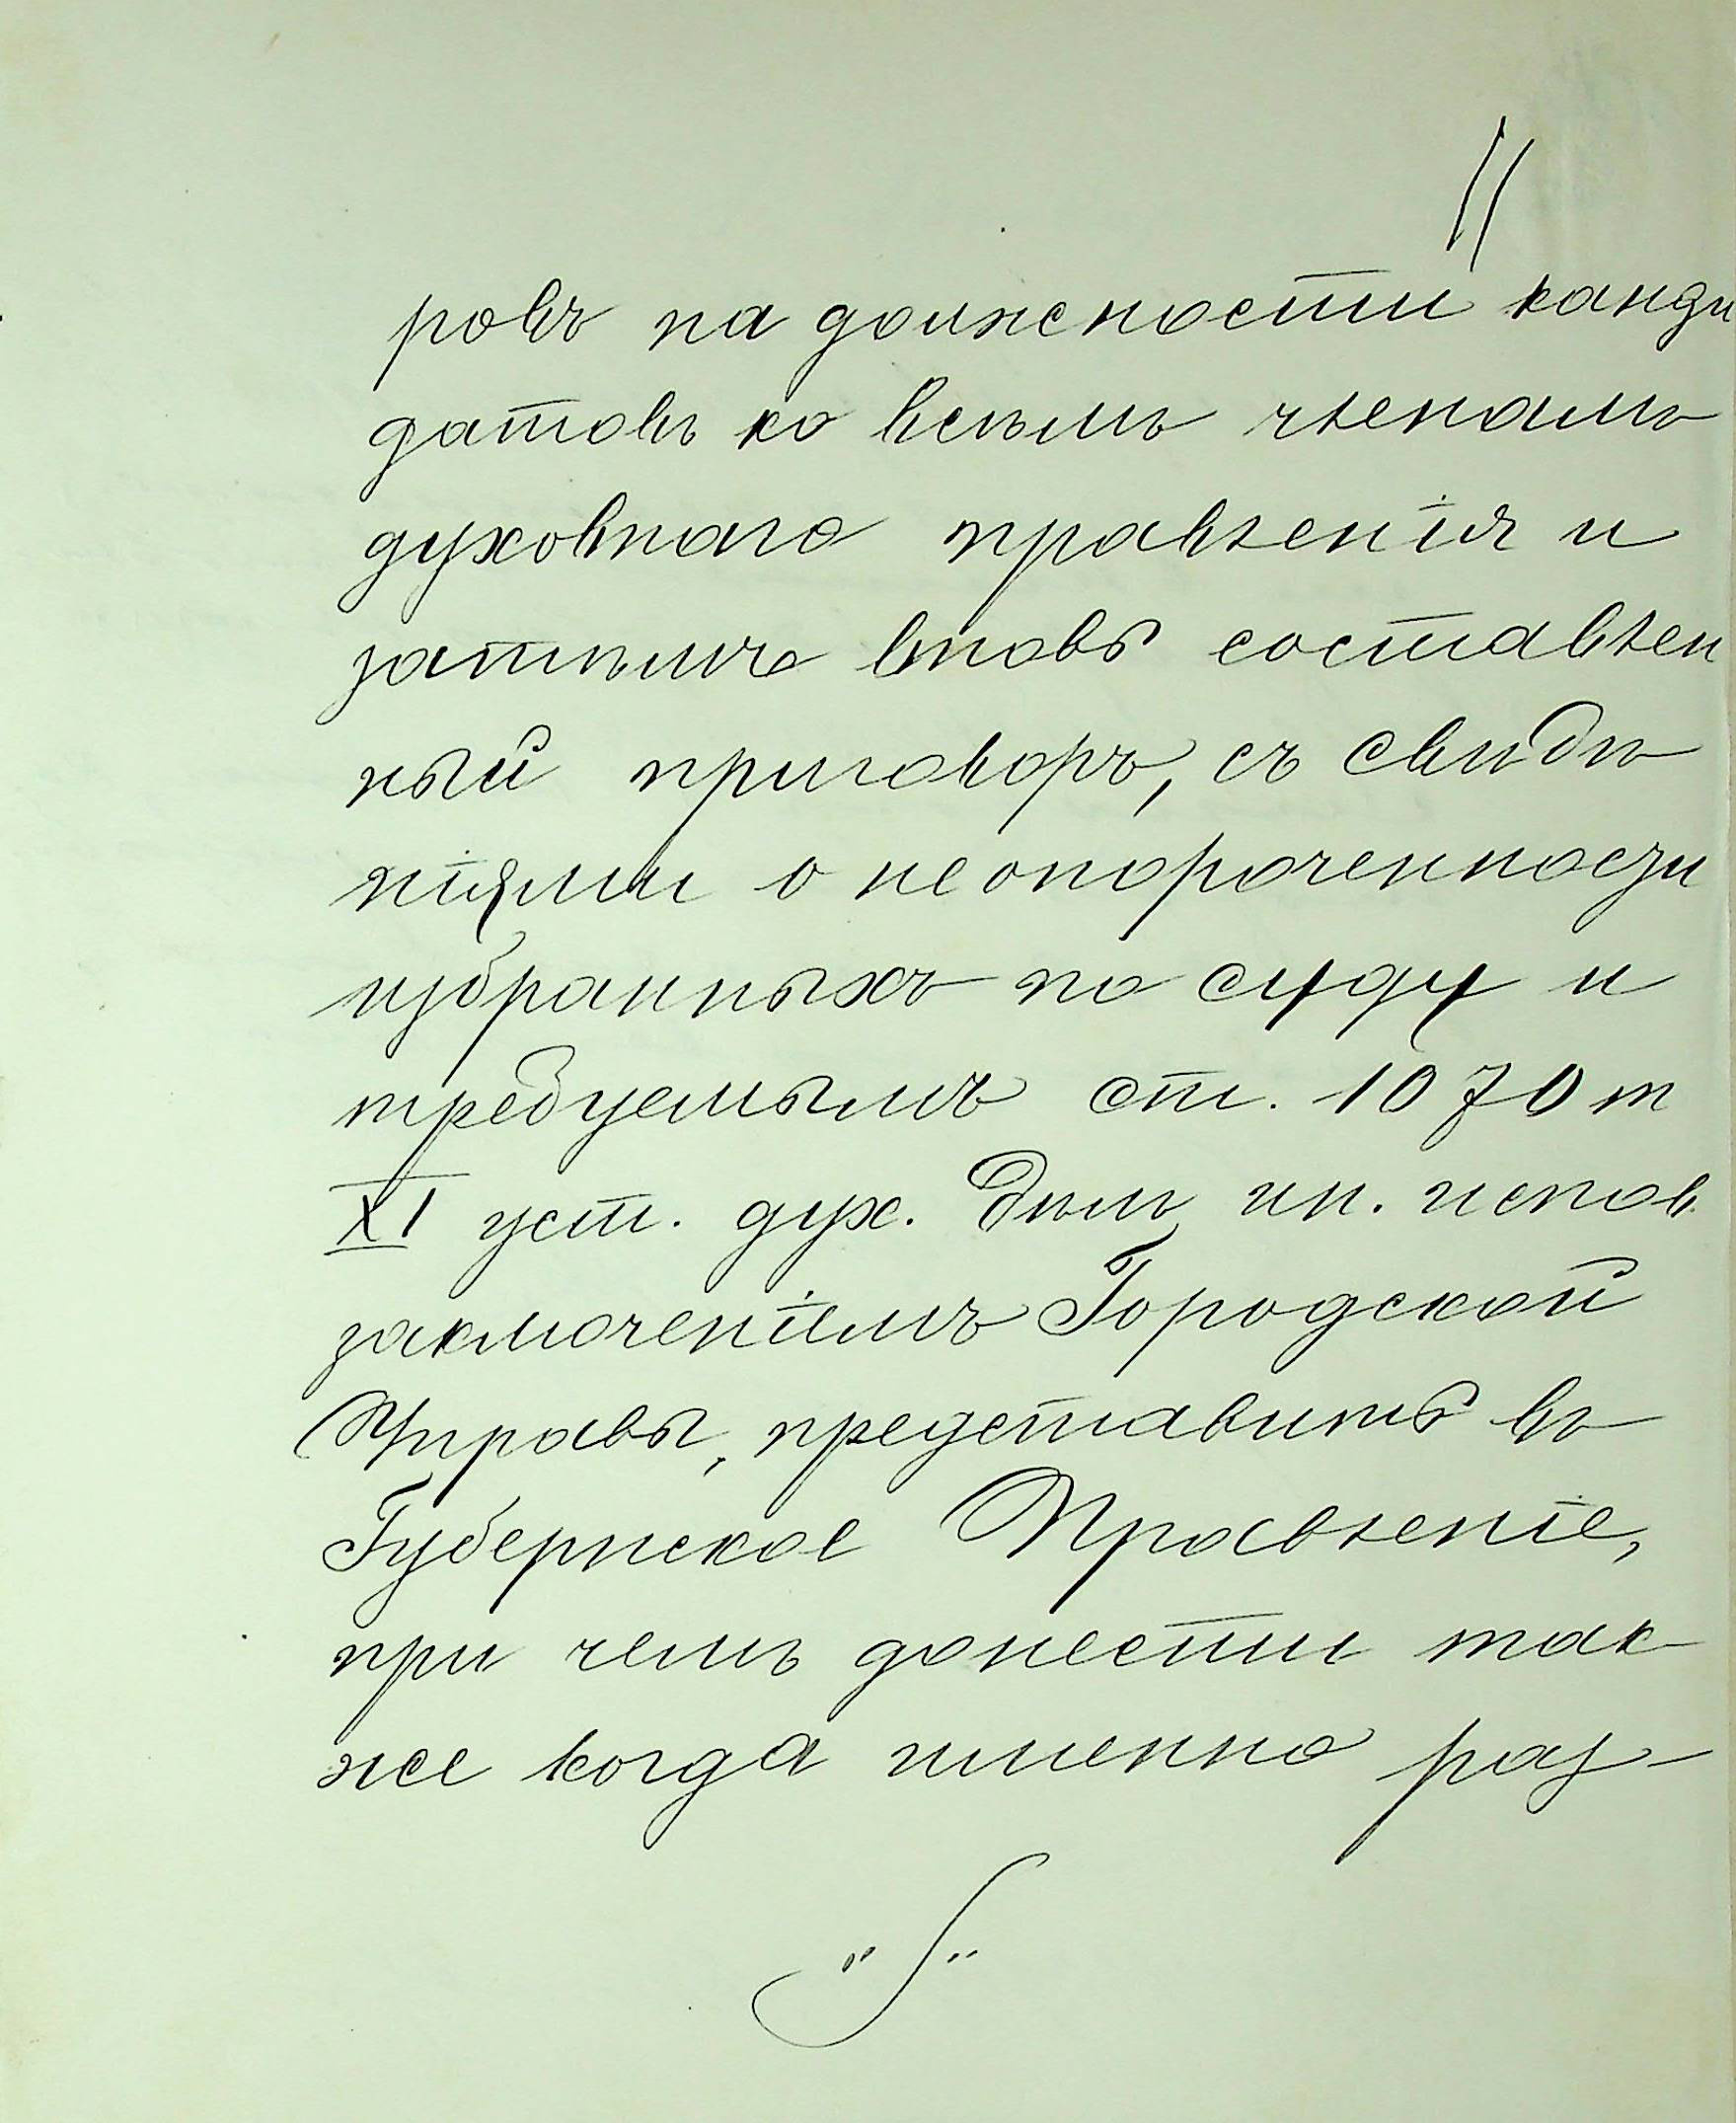 11
ровъ на должности канди
датовъ ко всѣмъ членамъ
духовнаго правленія и
затѣмъ вновь составлен
ный приговоръ, съ свѣдѣ
ніями о неопороченности
избранныхъ по суду и
требуемымъ ст. 1070 т
XI уст. дух. дѣлъ ин. испов.
заключеніемъ Городской
Управы, представить въ
Губернское Правленіе,
при чемъ донести так
же когда именно раз-